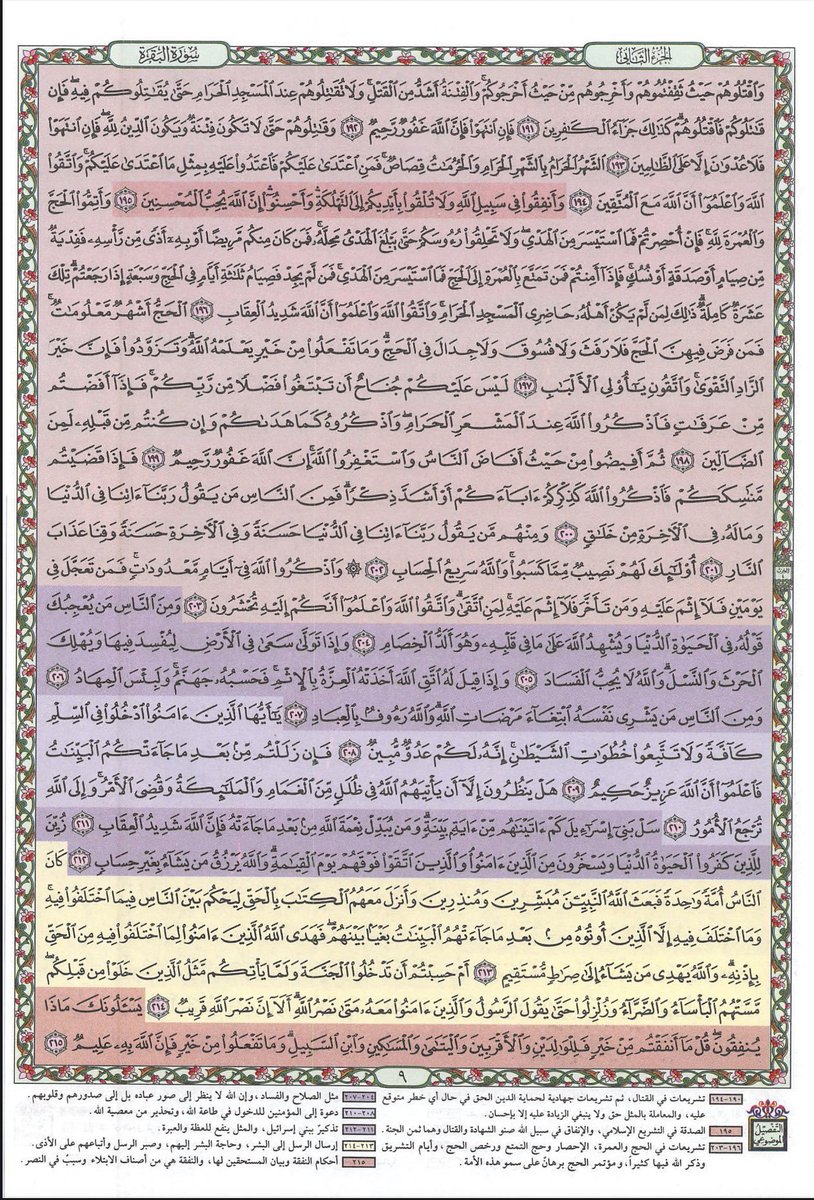 الجزء الثاني
سورة البقرة
وَٱقۡتُلُوهُمۡ حَيۡثُ ثَقِفۡتُمُوهُمۡ وَأَخۡرِجُوهُم مِّنۡ حَيۡثُ أَخۡرَجُوكُمۡۚ وَٱلۡفِتۡنَةُ أَشَدُّ مِنَ ٱلۡقَتۡلِۚ وَلَا تُقَٰتِلُوهُمۡ عِندَ ٱلۡمَسۡجِدِ ٱلۡحَرَامِ حَتَّىٰ يُقَٰتِلُوكُمۡ فِيهِۖ فَإِن
قَٰتَلُوكُمۡ فَٱقۡتُلُوهُمۡۗ كَذَٰلِكَ جَزَآءُ ٱلۡكَٰفِرِينَ ١٩١ فَإِنِ ٱنتَهَوۡاْ فَإِنَّ ٱللَّهَ غَفُورٞ رَّحِيمٞ ١٩٢ وَقَٰتِلُوهُمۡ حَتَّىٰ لَا تَكُونَ فِتۡنَةٞ وَيَكُونَ ٱلدِّينُ لِلَّهِۖ فَإِنِ ٱنتَهَوۡاْ
فَلَا عُدۡوَٰنَ إِلَّا عَلَى ٱلظَّٰلِمِينَ ١٩٣ ٱلشَّهۡرُ ٱلۡحَرَامُ بِٱلشَّهۡرِ ٱلۡحَرَامِ وَٱلۡحُرُمَٰتُ قِصَاصٞۚ فَمَنِ ٱعۡتَدَىٰ عَلَيۡكُمۡ فَٱعۡتَدُواْ عَلَيۡهِ بِمِثۡلِ مَا ٱعۡتَدَىٰ عَلَيۡكُمۡۚ وَٱتَّقُواْ
ٱللَّهَ وَٱعۡلَمُوٓاْ أَنَّ ٱللَّهَ مَعَ ٱلۡمُتَّقِينَ ١٩٤ وَأَنفِقُواْ فِي سَبِيلِ ٱللَّهِ وَلَا تُلۡقُواْ بِأَيۡدِيكُمۡ إِلَى ٱلتَّهۡلُكَةِ وَأَحۡسِنُوٓاْۚ إِنَّ ٱللَّهَ يُحِبُّ ٱلۡمُحۡسِنِينَ ١٩٥ وَأَتِمُّواْ ٱلۡحَجَّ
وَٱلۡعُمۡرَةَ لِلَّهِۚ فَإِنۡ أُحۡصِرۡتُمۡ فَمَا ٱسۡتَيۡسَرَ مِنَ ٱلۡهَدۡيِۖ وَلَا تَحۡلِقُواْ رُءُوسَكُمۡ حَتَّىٰ يَبۡلُغَ ٱلۡهَدۡيُ مَحِلَّهُۥۚ فَمَن كَانَ مِنكُم مَّرِيضًا أَوۡ بِهِۦٓ أَذٗى مِّن رَّأۡسِهِۦ فَفِدۡيَةٞ
مِّن صِيَامٍ أَوۡ صَدَقَةٍ أَوۡ نُسُكٖۚ فَإِذَآ أَمِنتُمۡ فَمَن تَمَتَّعَ بِٱلۡعُمۡرَةِ إِلَى ٱلۡحَجِّ فَمَا ٱسۡتَيۡسَرَ مِنَ ٱلۡهَدۡيِۚ فَمَن لَّمۡ يَجِدۡ فَصِيَامُ ثَلَٰثَةِ أَيَّامٖ فِي ٱلۡحَجِّ وَسَبۡعَةٍ إِذَا رَجَعۡتُمۡۗ تِلۡكَ
عَشَرَةٞ كَامِلَةٞۗ ذَٰلِكَ لِمَن لَّمۡ يَكُنۡ أَهۡلُهُۥ حَاضِرِي ٱلۡمَسۡجِدِ ٱلۡحَرَامِۚ وَٱتَّقُواْ ٱللَّهَ وَٱعۡلَمُوٓاْ أَنَّ ٱللَّهَ شَدِيدُ ٱلۡعِقَابِ ١٩٦ ٱلۡحَجُّ أَشۡهُرٞ مَّعۡلُومَٰتٞۚ
فَمَن فَرَضَ فِيهِنَّ ٱلۡحَجَّ فَلَا رَفَثَ وَلَا فُسُوقَ وَلَا جِدَالَ فِي ٱلۡحَجِّۗ وَمَا تَفۡعَلُواْ مِنۡ خَيۡرٖ يَعۡلَمۡهُ ٱللَّهُۗ وَتَزَوَّدُواْ فَإِنَّ خَيۡرَ
ٱلزَّادِ ٱلتَّقۡوَىٰۚ وَٱتَّقُونِ يَٰٓأُوْلِي ٱلۡأَلۡبَٰبِ ١٩٧ لَيۡسَ عَلَيۡكُمۡ جُنَاحٌ أَن تَبۡتَغُواْ فَضۡلٗا مِّن رَّبِّكُمۡۚ فَإِذَآ أَفَضۡتُم
مِّنۡ عَرَفَٰتٖ فَٱذۡكُرُواْ ٱللَّهَ عِندَ ٱلۡمَشۡعَرِ ٱلۡحَرَامِۖ وَٱذۡكُرُوهُ كَمَا هَدَىٰكُمۡ وَإِن كُنتُم مِّن قَبۡلِهِۦ لَمِنَ
ٱلضَّآلِّينَ ١٩٨ ثُمَّ أَفِيضُواْ مِنۡ حَيۡثُ أَفَاضَ ٱلنَّاسُ وَٱسۡتَغۡفِرُواْ ٱللَّهَۚ إِنَّ ٱللَّهَ غَفُورٞ رَّحِيمٞ ١٩٩ فَإِذَا قَضَيۡتُم
مَّنَٰسِكَكُمۡ فَٱذۡكُرُواْ ٱللَّهَ كَذِكۡرِكُمۡ ءَابَآءَكُمۡ أَوۡ أَشَدَّ ذِكۡرٗاۗ فَمِنَ ٱلنَّاسِ مَن يَقُولُ رَبَّنَآ ءَاتِنَا فِي ٱلدُّنۡيَا
وَمَا لَهُۥ فِي ٱلۡأٓخِرَةِ مِنۡ خَلَٰقٖ ٢٠٠ وَمِنۡهُم مَّن يَقُولُ رَبَّنَآ ءَاتِنَا فِي ٱلدُّنۡيَا حَسَنَةٗ وَفِي ٱلۡأٓخِرَةِ حَسَنَةٗ وَقِنَا عَذَابَ
ٱلنَّارِ ٢٠١ أُوْلَٰٓئِكَ لَهُمۡ نَصِيبٞ مِّمَّا كَسَبُواْۚ وَٱللَّهُ سَرِيعُ ٱلۡحِسَابِ ٢٠٢ ۞ وَٱذۡكُرُواْ ٱللَّهَ فِيٓ أَيَّامٖ مَّعۡدُودَٰتٖۚ فَمَن تَعَجَّلَ فِي
يَوۡمَيۡنِ فَلَآ إِثۡمَ عَلَيۡهِ وَمَن تَأَخَّرَ فَلَآ إِثۡمَ عَلَيۡهِۚ لِمَنِ ٱتَّقَىٰۗ وَٱتَّقُواْ ٱللَّهَ وَٱعۡلَمُوٓاْ أَنَّكُمۡ إِلَيۡهِ تُحۡشَرُونَ ٢٠٣ وَمِنَ ٱلنَّاسِ مَن يُعۡجِبُكَ
قَوۡلُهُۥ فِي ٱلۡحَيَوٰةِ ٱلدُّنۡيَا وَيُشۡهِدُ ٱللَّهَ عَلَىٰ مَا فِي قَلۡبِهِۦ وَهُوَ أَلَدُّ ٱلۡخِصَامِ ٢٠٤ وَإِذَا تَوَلَّىٰ سَعَىٰ فِي ٱلۡأَرۡضِ لِيُفۡسِدَ فِيهَا وَيُهۡلِكَ
ٱلۡحَرۡثَ وَٱلنَّسۡلَۚ وَٱللَّهُ لَا يُحِبُّ ٱلۡفَسَادَ ٢٠٥ وَإِذَا قِيلَ لَهُ ٱتَّقِ ٱللَّهَ أَخَذَتۡهُ ٱلۡعِزَّةُ بِٱلۡإِثۡمِۚ فَحَسۡبُهُۥ جَهَنَّمُۖ وَلَبِئۡسَ ٱلۡمِهَادُ ٢٠٦
وَمِنَ ٱلنَّاسِ مَن يَشۡرِي نَفۡسَهُ ٱبۡتِغَآءَ مَرۡضَاتِ ٱللَّهِۚ وَٱللَّهُ رَءُوفُۢ بِٱلۡعِبَادِ ٢٠٧ يَٰٓأَيُّهَا ٱلَّذِينَ ءَامَنُواْ ٱدۡخُلُواْ فِي ٱلسِّلۡمِ
كَآفَّةٗ وَلَا تَتَّبِعُواْ خُطُوَٰتِ ٱلشَّيۡطَٰنِۚ إِنَّهُۥ لَكُمۡ عَدُوّٞ مُّبِينٞ ٢٠٨ فَإِن زَلَلۡتُم مِّنۢ بَعۡدِ مَا جَآءَتۡكُمُ ٱلۡبَيِّنَٰتُ
فَٱعۡلَمُوٓاْ أَنَّ ٱللَّهَ عَزِيزٌ حَكِيمٌ ٢٠٩ هَلۡ يَنظُرُونَ إِلَّآ أَن يَأۡتِيَهُمُ ٱللَّهُ فِي ظُلَلٖ مِّنَ ٱلۡغَمَامِ وَٱلۡمَلَٰٓئِكَةُ وَقُضِيَ ٱلۡأَمۡرُۚ وَإِلَى ٱللَّهِ
تُرۡجَعُ ٱلۡأُمُورُ ٢١٠ سَلۡ بَنِيٓ إِسۡرَٰٓءِيلَ كَمۡ ءَاتَيۡنَٰهُم مِّنۡ ءَايَةِۭ بَيِّنَةٖۗ وَمَن يُبَدِّلۡ نِعۡمَةَ ٱللَّهِ مِنۢ بَعۡدِ مَا جَآءَتۡهُ فَإِنَّ ٱللَّهَ شَدِيدُ ٱلۡعِقَابِ ٢١١ زُيِّنَ
لِلَّذِينَ كَفَرُواْ ٱلۡحَيَوٰةُ ٱلدُّنۡيَا وَيَسۡخَرُونَ مِنَ ٱلَّذِينَ ءَامَنُواْۘ وَٱلَّذِينَ ٱتَّقَوۡاْ فَوۡقَهُمۡ يَوۡمَ ٱلۡقِيَٰمَةِۗ وَٱللَّهُ يَرۡزُقُ مَن يَشَآءُ بِغَيۡرِ حِسَابٖ ٢١٢ كَانَ
ٱلنَّاسُ أُمَّةٗ وَٰحِدَةٗ فَبَعَثَ ٱللَّهُ ٱلنَّبِيِّـۧنَ مُبَشِّرِينَ وَمُنذِرِينَ وَأَنزَلَ مَعَهُمُ ٱلۡكِتَٰبَ بِٱلۡحَقِّ لِيَحۡكُمَ بَيۡنَ ٱلنَّاسِ فِيمَا ٱخۡتَلَفُواْ فِيهِۚ
وَمَا ٱخۡتَلَفَ فِيهِ إِلَّا ٱلَّذِينَ أُوتُوهُ مِنۢ بَعۡدِ مَا جَآءَتۡهُمُ ٱلۡبَيِّنَٰتُ بَغۡيَۢا بَيۡنَهُمۡۖ فَهَدَى ٱللَّهُ ٱلَّذِينَ ءَامَنُواْ لِمَا ٱخۡتَلَفُواْ فِيهِ مِنَ ٱلۡحَقِّ
بِإِذۡنِهِۦۗ وَٱللَّهُ يَهۡدِي مَن يَشَآءُ إِلَىٰ صِرَٰطٖ مُّسۡتَقِيمٍ ٢١٣ أَمۡ حَسِبۡتُمۡ أَن تَدۡخُلُواْ ٱلۡجَنَّةَ وَلَمَّا يَأۡتِكُم مَّثَلُ ٱلَّذِينَ خَلَوۡاْ مِن قَبۡلِكُمۖ
مَّسَّتۡهُمُ ٱلۡبَأۡسَآءُ وَٱلضَّرَّآءُ وَزُلۡزِلُواْ حَتَّىٰ يَقُولَ ٱلرَّسُولُ وَٱلَّذِينَ ءَامَنُواْ مَعَهُۥ مَتَىٰ نَصۡرُ ٱللَّهِۗ أَلَآ إِنَّ نَصۡرَ ٱللَّهِ قَرِيبٞ ٢١٤ يَسۡـَٔلُونَكَ مَاذَا
يُنفِقُونَۖ قُلۡ مَآ أَنفَقۡتُم مِّنۡ خَيۡرٖ فَلِلۡوَٰلِدَيۡنِ وَٱلۡأَقۡرَبِينَ وَٱلۡيَتَٰمَىٰ وَٱلۡمَسَٰكِينِ وَٱبۡنِ ٱلسَّبِيلِۗ وَمَا تَفۡعَلُواْ مِنۡ خَيۡرٖ فَإِنَّ ٱللَّهَ بِهِۦ عَلِيمٞ ٢١٥
٩
التفصيل
الموضوعي
١٩٠-١٩٤ تشريعات في القتال، ثم تشريعات جهادية لحماية الدين الحق في حال أي خطر متوقع
عليه، والمعاملة بالمثل حق ولا ينبغي الزيادة عليه إلا بإحسان.
١٩٥ الصدقة في التشريع الإسلامي، والإنفاق في سبيل الله صنو الشهادة والقتال وهما ثمن الجنة.
١٩٦-٢٠٣ تشريعات في الحج والعمرة، الإحصار وحج التمتع ورخص الحج، وأيام التشريق
وذكر الله فيها كثيراً، ومؤتمر الحج برهانٌ على سمو هذه الأمة.
٢٠٤-٢٠٧ مثل الصلاح والفساد، وإن الله لا ينظر إلى صور عباده بل إلى صدورهم وقلوبهم.
٢٠٨-٢١٠ دعوة إلى المؤمنين للدخول في طاعة الله، وتحذير من معصية الله.
٢١١-٢١٢ تذكيرٌ ببني إسرائيل، والمثل ينفع للعظة والعبرة.
٢١٣-٢١٤ إرسال الرسل إلى البشر، وحاجة البشر إليهم، وصبر الرسل وأتباعهم على الأذى.
٢١٥ أحكام النفقة وبيان المستحقين لها، والنفقة هي من أصناف الابتلاء وسببٌ في النصر.